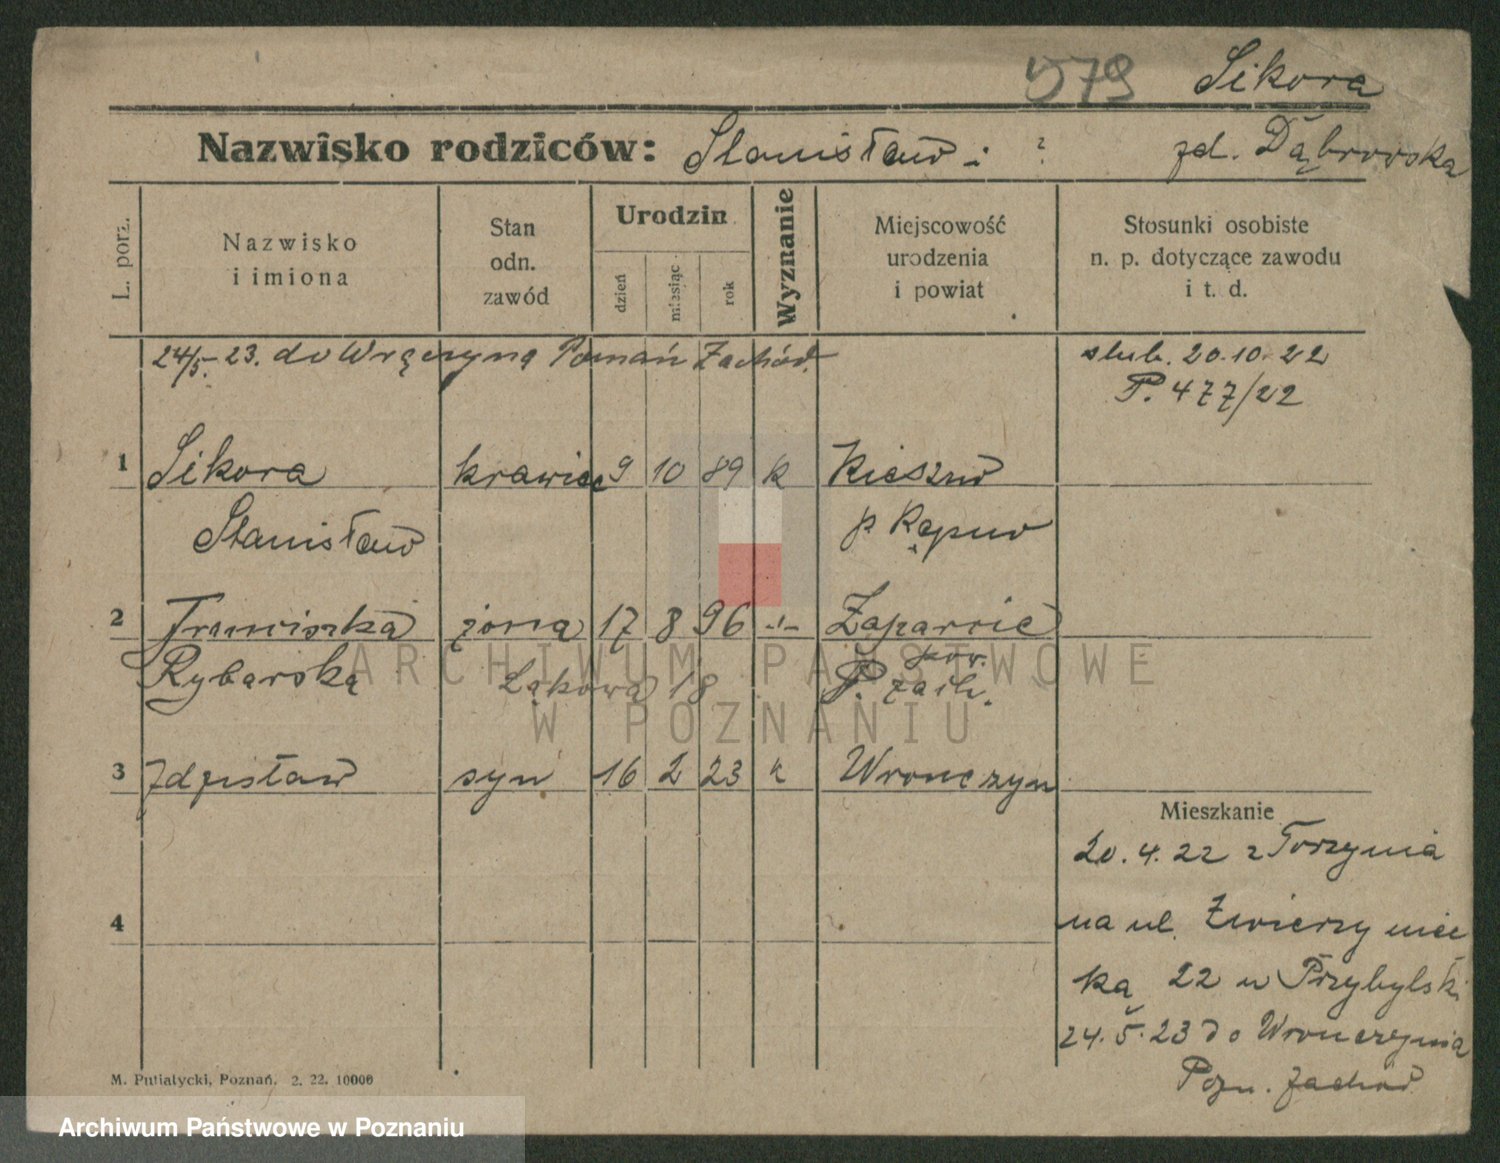 579 Sikora
Nazwisko rodziców: Stanisław i ? zd. Dąbrowska
L. porz.
Nazwisko
i imiona
Stan
odn.
zawód
Urodzin
dzień
miesiąc
rok
Wyznanie
Miejscowość
urodzenia
i powiat
Stosunki osobiste
n. p. dotyczące zawodu
i t. d.
24/5. 23. do Poznań Zachód.
slub. 20.10.22
P. 477/22
1 Sikora krawiec 9 10 89 k
Stanisław p.
2 Franciszka żona 17 8 96 -"-
Rybarska Łąkowa 18 pow.
P. zach.
3 Zdzisław syn 16 2 23 k Wronczyn
Mieszkanie
20.4.22 z
na ul. Zwierzyniec
4
ką 22 u Przybylski
24.5.23 do Wronczynia
Pozn. Zachód
M. Putiatycki, Poznań. 2. 22. 10000
ARCHIWUM PAŃSTWOWE
W POZNANIU
Archiwum Państwowe w Poznaniu